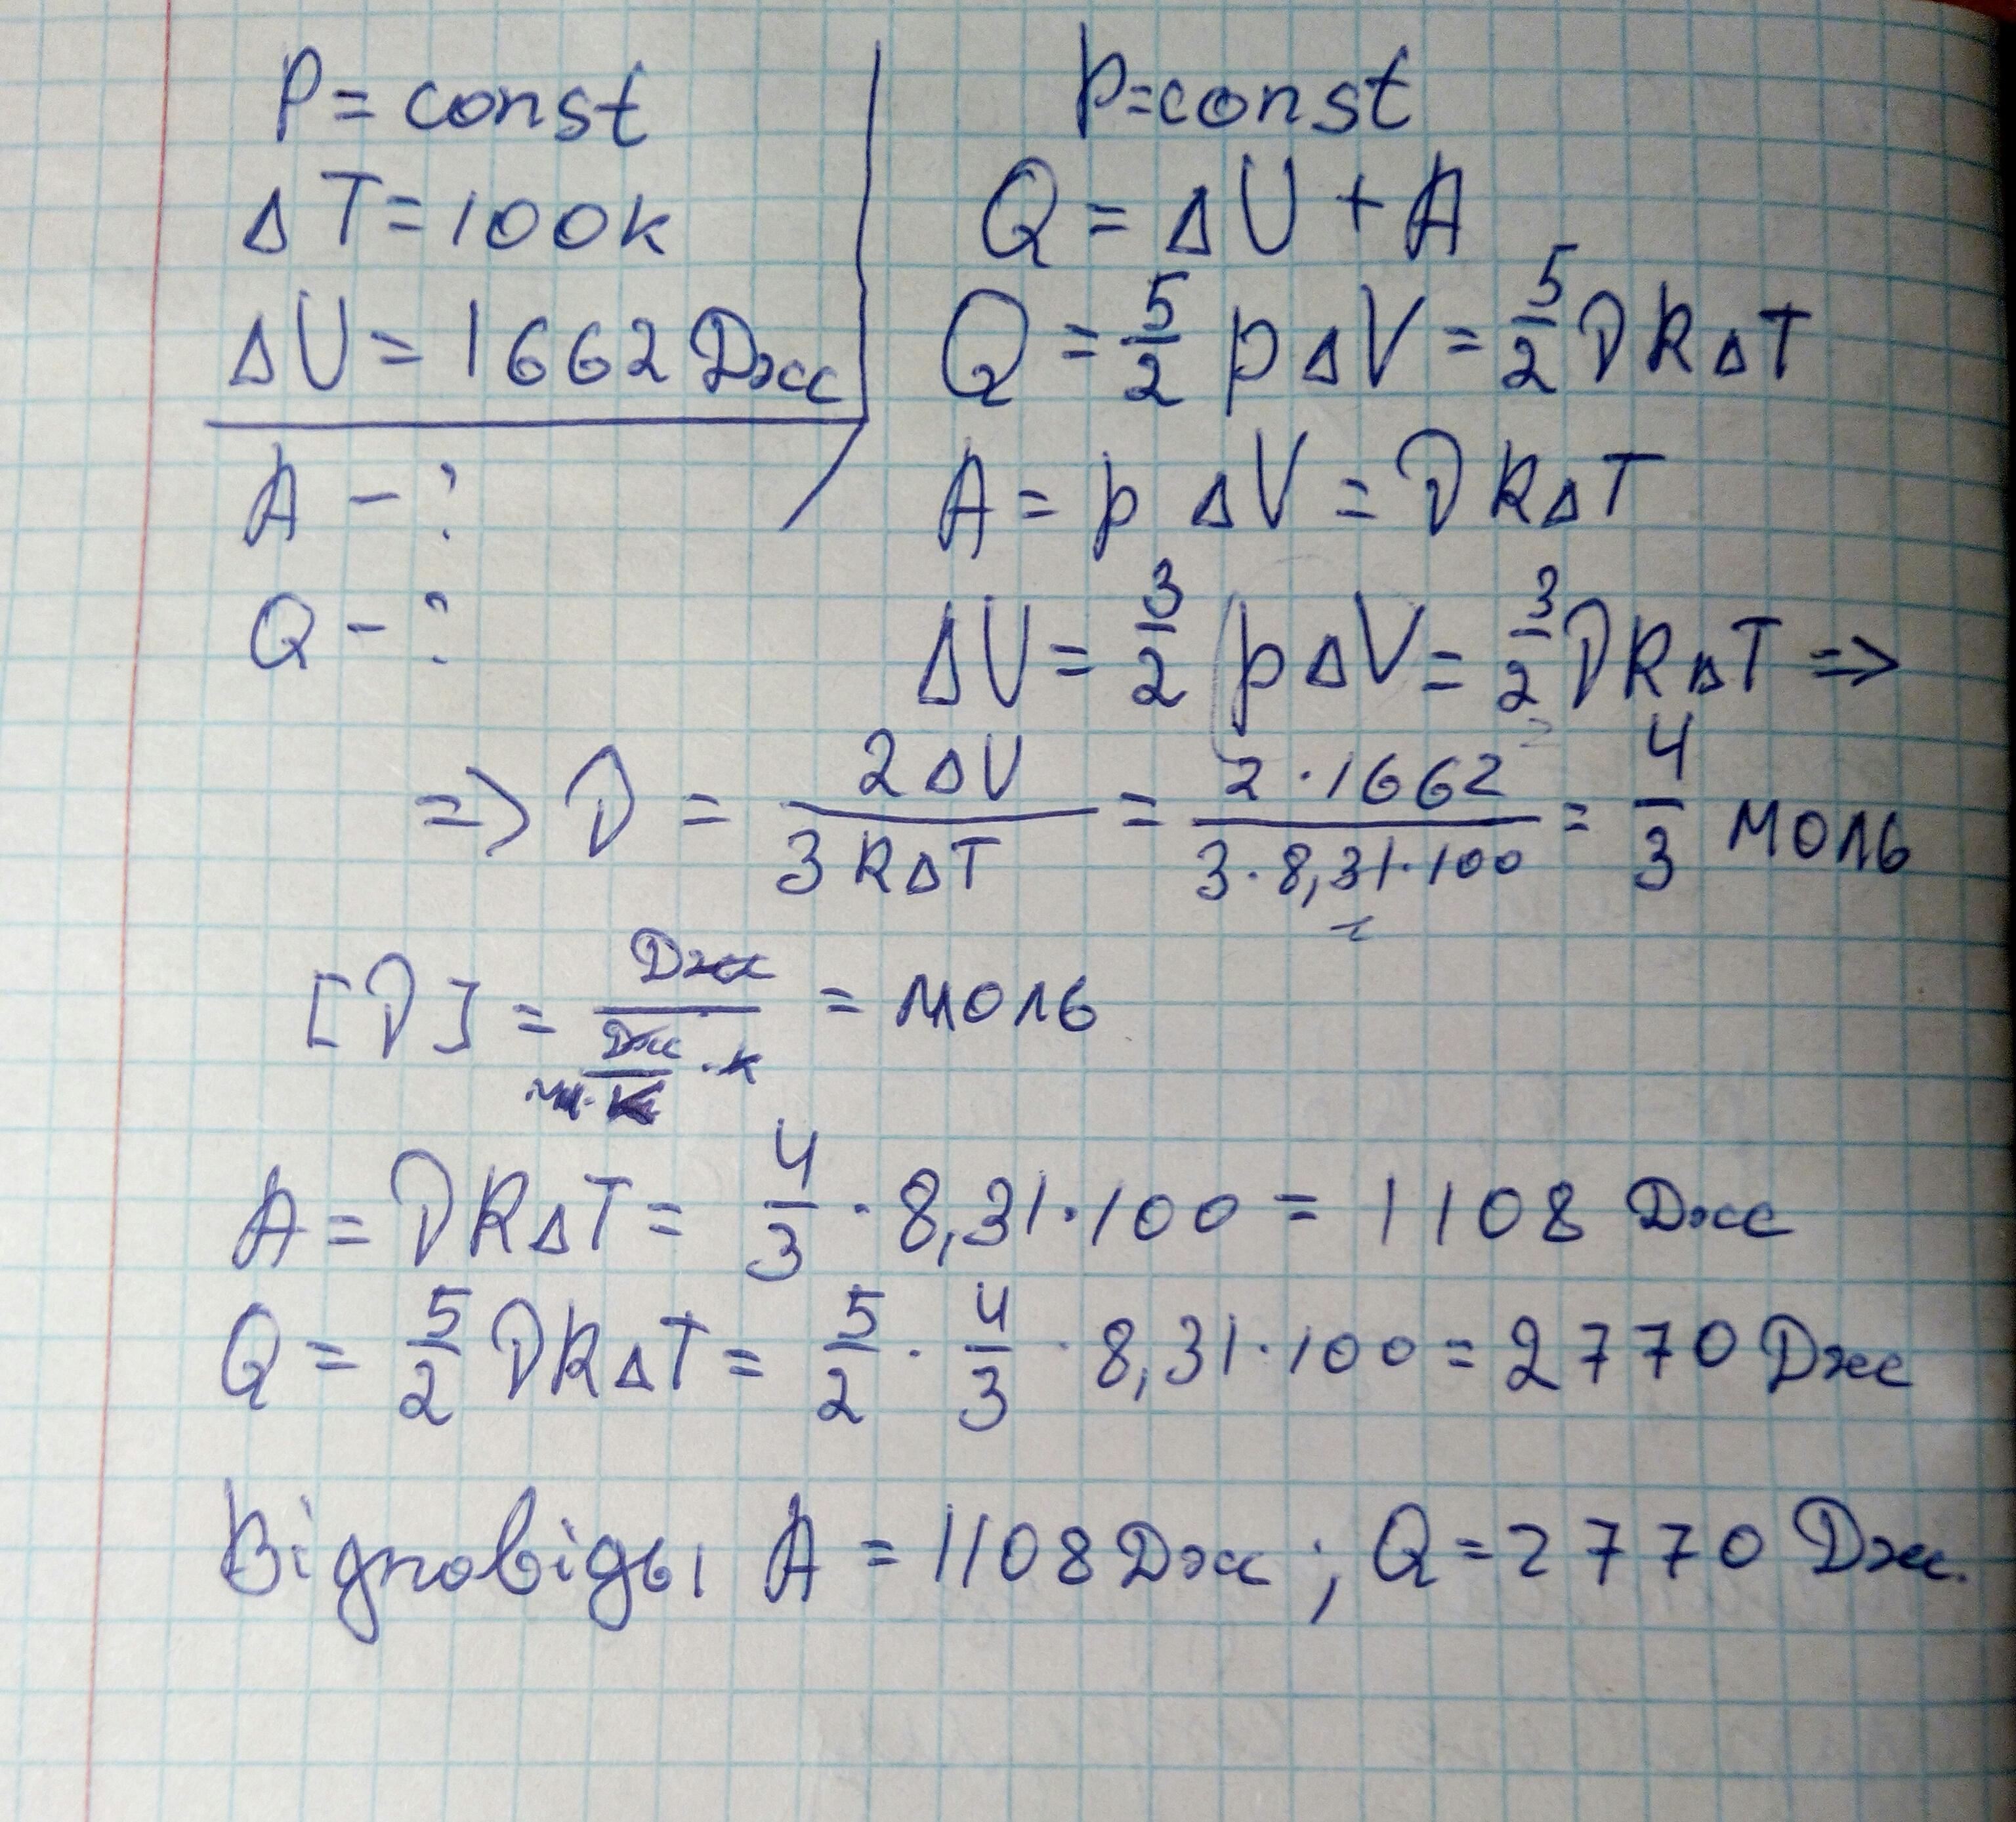 P = const
ΔT = 100К
ΔU = 1662 Дж
A – ?
Q – ?
p = const
Q = ΔU + A
Q = 5/2 pΔV = 5/2 νRΔT
A = pΔV = νRΔT
ΔU = 3/2 pΔV = 3/2 νRΔT =>
=> ν = 2ΔU / 3RΔT = 2·1662 / 3·8,31·100 = 4/3 моль
[ν] = Дж / (Дж / м·К · К) = моль
A = νRΔT = 4/3 · 8,31·100 = 1108 Дж
Q = 5/2 νRΔT = 5/2 · 4/3 · 8,31·100 = 2770 Дж
Відповідь: A = 1108 Дж ; Q = 2770 Дж.